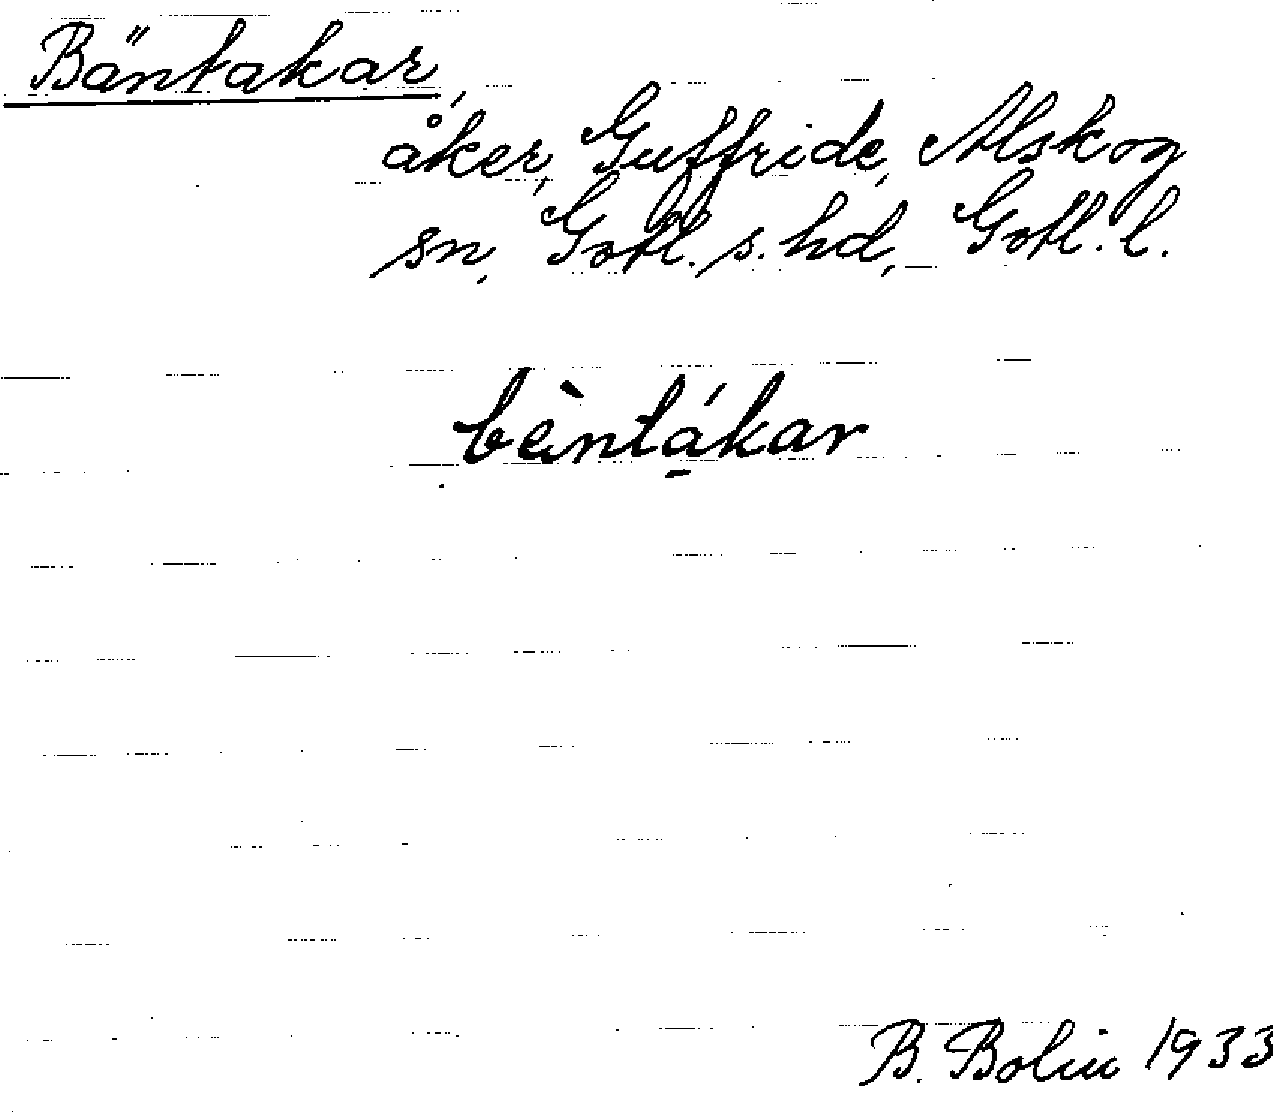 Bäntakar,
åker, Guffride, Alskog
sn, Gotl. s. hd, Gotl. l.
bèntá̠kar
B. Bolin 1933